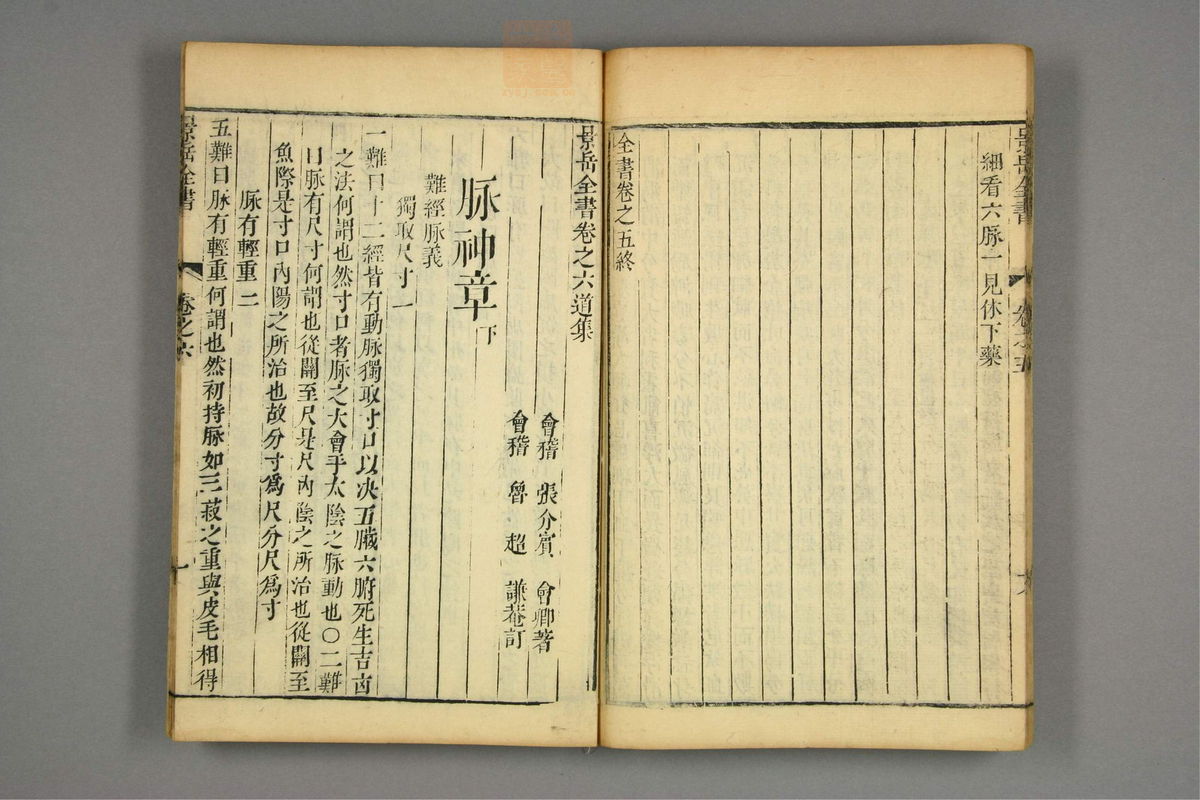 景岳全書 卷之五
細看六脉一見休下藥
全書卷之五終
景岳全書卷之六道集
會稽 張介賓 會卿著
會稽 魯超 謙菴訂
脉神章 下
難經脉義
獨取尺寸一
一難曰十二經皆有動脉獨取寸口以决五臟六腑死生吉凶
之法何謂也然寸口者脉之大會手太陰之脉動也〇二難
曰脉有尺寸何謂也從關至尺是尺內陰之所治也從關至
魚際是寸口內陽之所治也故分寸爲尺分尺爲寸
脉有輕重二
五難曰脉有輕重何謂也然初持脉如三菽之重與皮毛相得
景岳全書 卷之六 一